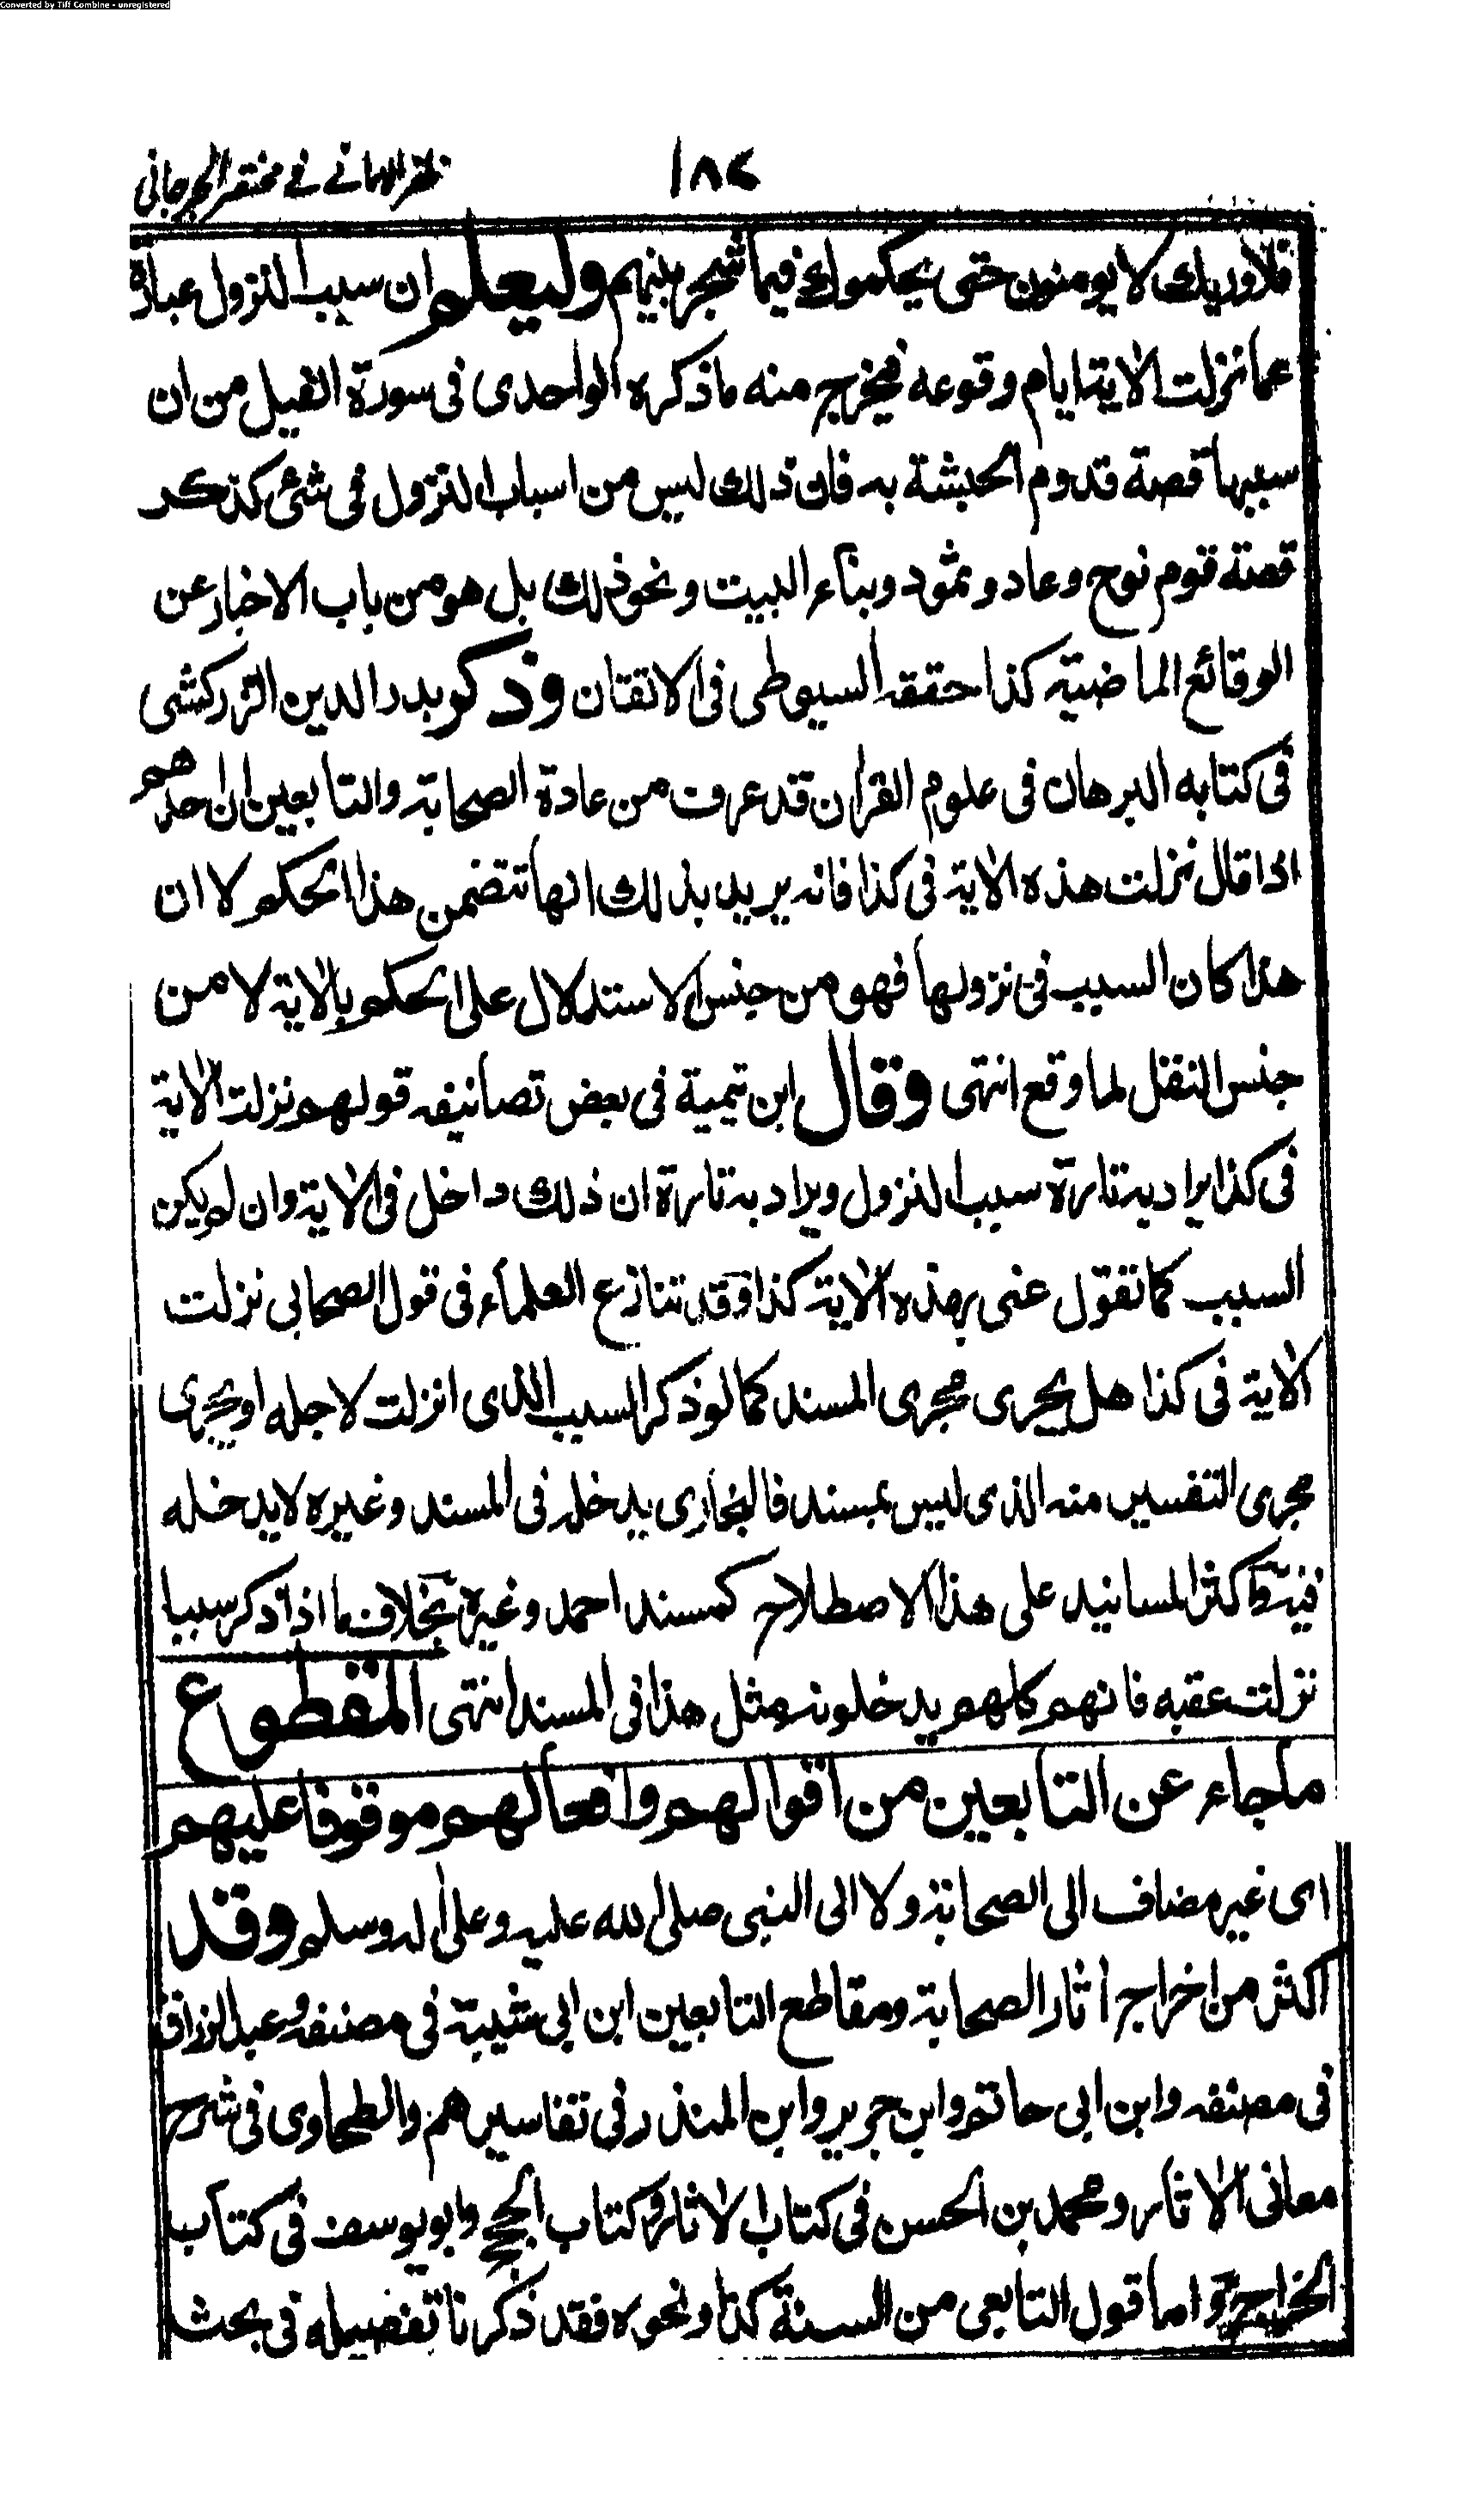 Converted by Tiff Combine - unregistered
١٨٢
ظفر الامانے فے مختصر الجرجانی
فلا وربك لا يومنون حتى يحكموك فيما شجر بينهم وليعلم ان سبب النزول عبارة
عما نزلت الاية ايام وقوعه فيخرج منه ما ذكره الواحدى فى سورة الفيل من ان
سببها قصة قدوم الحبشة به فان ذلك ليس من اسباب النزول فى شئ كذكر
قصة قوم نوح وعاد وثمود وبناء البيت ونحو ذلك بل هو من باب الاخبار عن
الوقائع الماضية كذا حققه السيوطى فى الاتقان وذكر بدر الدين الزركشى
فى كتابه البرهان فى علوم القرأن قد عرف من عادة الصحابة والتابعين ان احدهم
اذا قال نزلت هذه الاية فى كذا فانه يريد بذلك انها تتضمن هذا الحكم لا ان
هذا كان السبب فى نزولها فهو من جنس الاستدلال على الحكم بالاية لا من
جنس النقل لما وقع انتهى وقال ابن تيمية فى بعض تصانيفه قولهم نزلت الاية
فى كذا يراد به تارة سبب النزول ويراد به تارة ان ذلك داخل فى الاية وان لم يكن
السبب كما تقول عنى بهذه الاية كذا وقد تنازع العلماء فى قول الصحابى نزلت
الاية فى كذا هل يجرى مجرى المسند كما لو ذكر السبب الذى انزلت لاجله او يجرى
مجرى التفسير منه الذى ليس بمسند فالبخارى يدخله فى المسند وغيره لا يدخله
فيه واكثر المسانيد على هذا الاصطلاح كمسند احمد وغيره بخلاف ما اذا ذكر سببا
نزلت عقبه فانهم كلهم يدخلونه مثل هذا فى المسند انتهى المقطوع
ما جاء عن التابعين من اقوالهم وافعالهم موقوفا عليهم
اى غير مضاف الى الصحابة ولا الى النبى صلى الله عليه وعلى أله وسلم وقد
اكثر من اخراج أثار الصحابة ومقاطع التابعين ابن ابى شيبة فى مصنفه وعبد الرزاق
فى مصنفه وابن ابى حاتم وابن جرير وابن المنذر فى تفاسيرهم والطحاوى فى شرح
معانى الاثار ومحمد بن الحسن فى كتاب الاثار وكتاب الحجج وابو يوسف فى كتاب
الخراج واما قول التابعى من السنة كذا ونحوه فقد ذكرنا تفضيله فى بحث